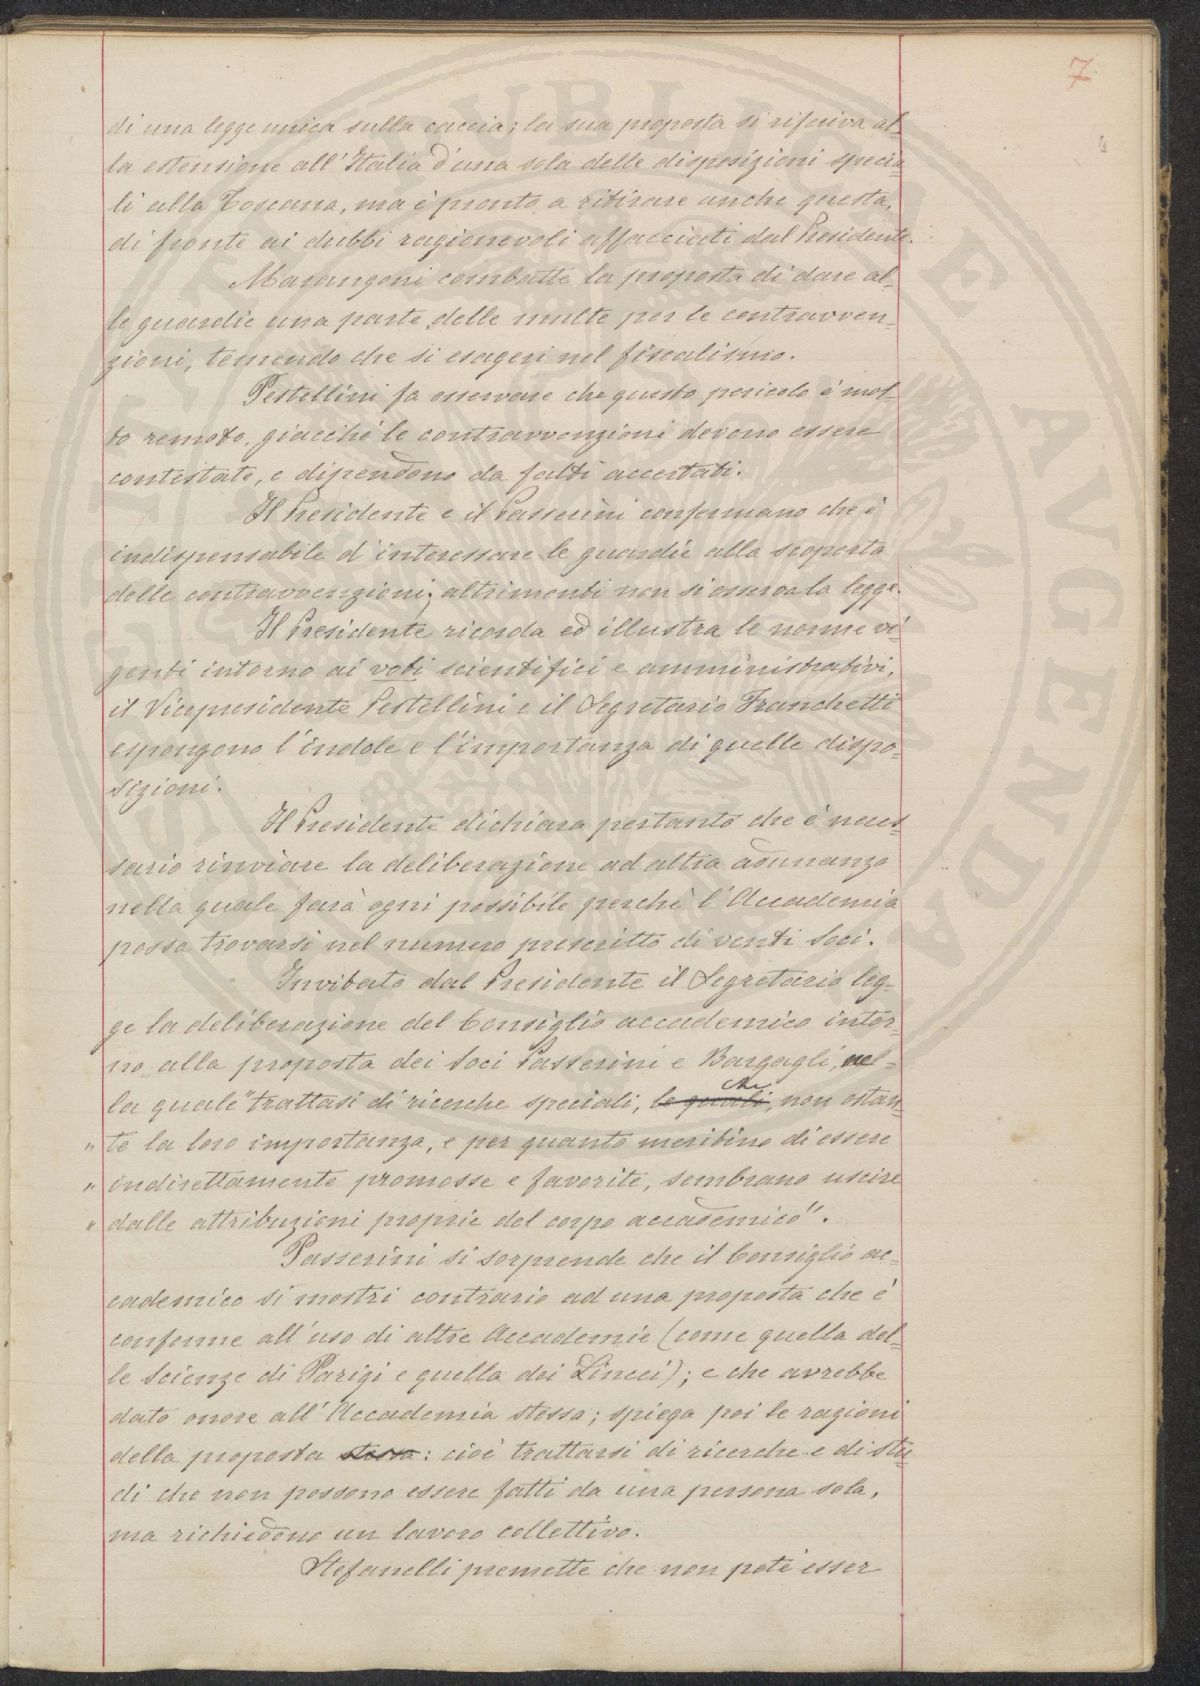 7
di una legge unica sulla caccia; la sua proposta si riferiva al-
la estensione all'Italia d'una sola delle disposizioni specia-
li alla Toscana, ma è pronto a ritirare anche questa,
di fronte ai dubbi ragionevoli affacciati dal Presidente.
Marangoni combatte la proposta di dare al-
le guardie una parte delle multe per le contravven-
zioni, temendo che si esageri nel fiscalismo.
Pestellini fa osservare che questo pericolo è mol-
to remoto, giacchè le contravvenzioni devono essere
contestate, e dipendono da fatti accertati.
Il Presidente e il Passerini confermano che è
indispensabile d'interessare le guardie alla scoperta
delle contravvenzioni; altrimenti non si osserva la legge.
Il Presidente ricorda ed illustra le norme vi-
genti intorno ai voti scientifici e amministrativi,
il Vicepresidente Pestellini e il Segretario Franchetti
espongono l'indole e l'importanza di quelle dispo-
sizioni.
Il Presidente dichiara pertanto che è neces-
sario rinviare la deliberazione ad altra adunanza
nella quale farà ogni possibile perchè l'Accademia
possa trovarsi nel numero prescritto di venti Soci.
Invitato dal Presidente il Segretario leg-
ge la deliberazione del Consiglio accademico intor-
no alla proposta dei Soci Passerini e Bargagli, nel-
la quale "trattasi di ricerche speciali, le quali, che non ostan-
" te la loro importanza, e per quanto meritino di essere
" indirettamente promosse e favorite, sembrano uscire
" dalle attribuzioni proprie del corpo accademico".
Passerini si sorprende che il Consiglio ac-
cademico si mostri contrario ad una proposta che è
conforme all'uso di altre Accademie (come quella del-
le Scienze di Parigi e quella dei Lincei); e che avrebbe
dato onore all'Accademia stessa; spiega poi le ragioni
della proposta stessa: cioè trattarsi di ricerche e di stu-
di che non possono essere fatti da una persona sola,
ma richiedono un lavoro collettivo.
Stefanelli premette che non potè esser